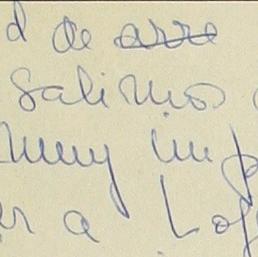 d de arre
salimos
muy im
er a